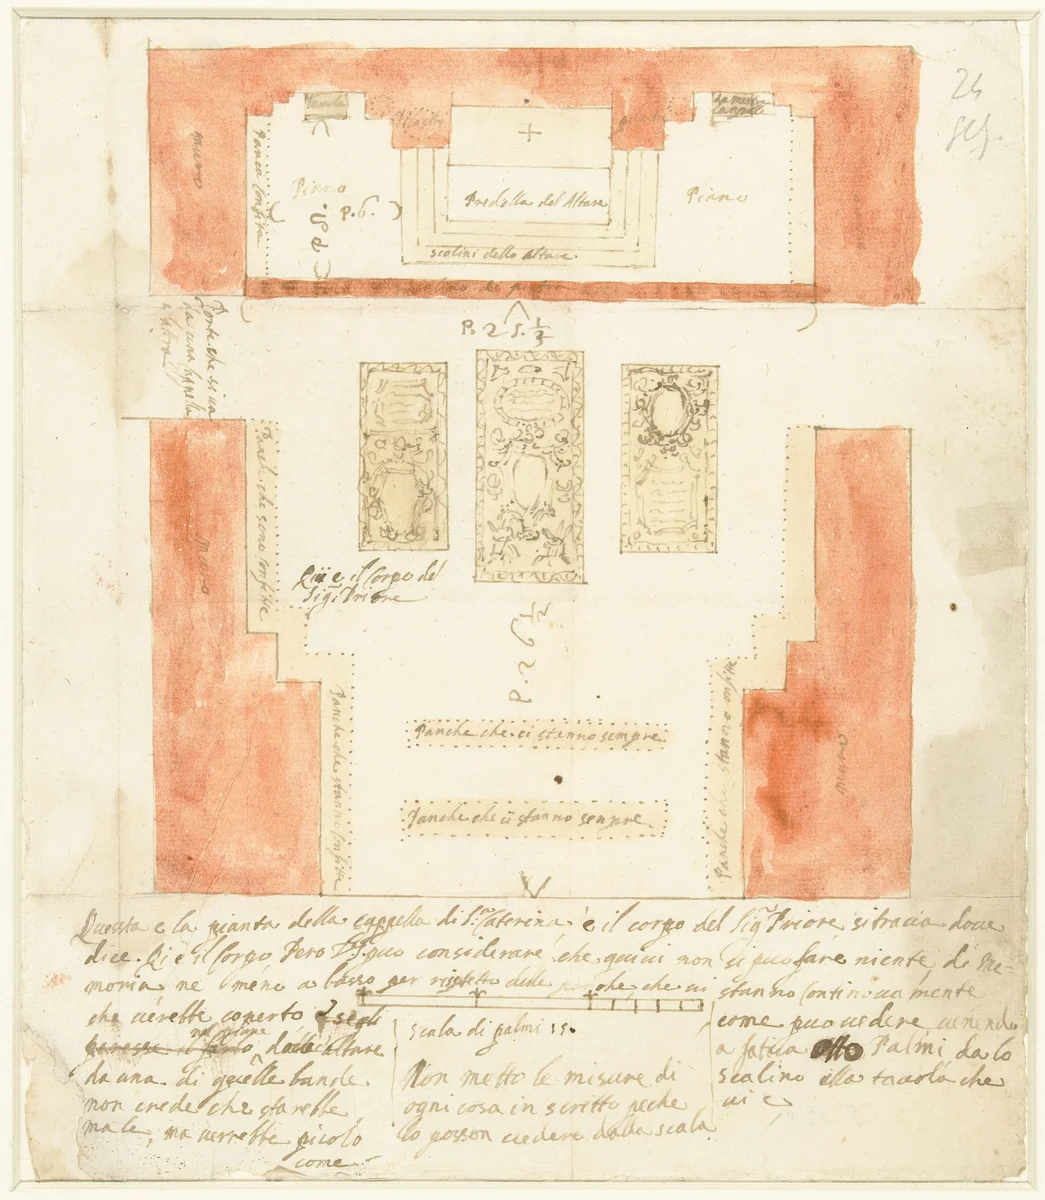 24
muro
Piano
P. 6.
Predella del Altare
Piano
scalini dello Altare
P. 2 s. ½
Porte che si va
da una capella
a l'altra
Panche che sono confitte
muro
Qui e il Corpo del
Sig.r Priore
P. 29 ½
Panche che stanno confitte
Panche che ci stanno sempre
Panche che ci stanno sempre
Panche che stanno confitte
muro
Questa e la pianta della cappella di S.ta Caterina e il corpo del Sig.r Priore si tracia dove
dice. Qi e il Corpo Pero V.S. puo considerare che quivi non si puo fare niente di me-
moria ne meno a basso per rispetto dele che vi stanno Continovamente
che verebbe coperto
nel piano
Altare
da una di quelle bande
non crede che starebbe
male, ma verrebbe picolo
come
scala di palmi 15.
Non metto le misure di
ogni cosa in scritto peche
lo posson vedere dalla scala
come puo vedere venendo
a fatica otto Palmi da lo
scalino alla tavola che
vi e